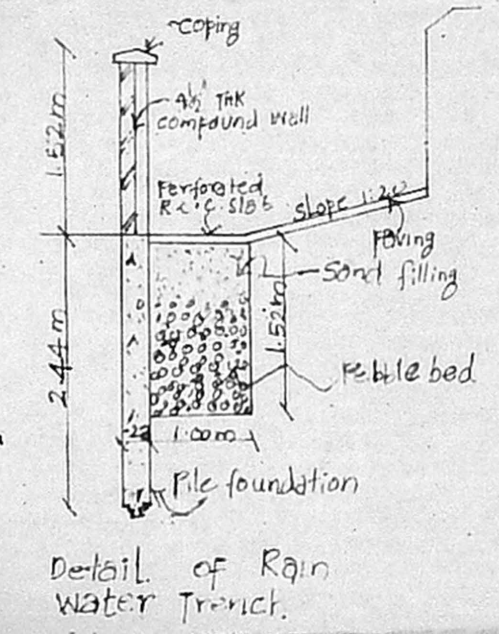 Coping
1.52m
4½" THK
compound wall
Perforated
R.C.C. Slab
Slope 1:20
Paving
Sand filling
2.44m
1.52m
Pebble bed
.23
1.00m
Pile foundation
Detail of Rain
Water Trench.